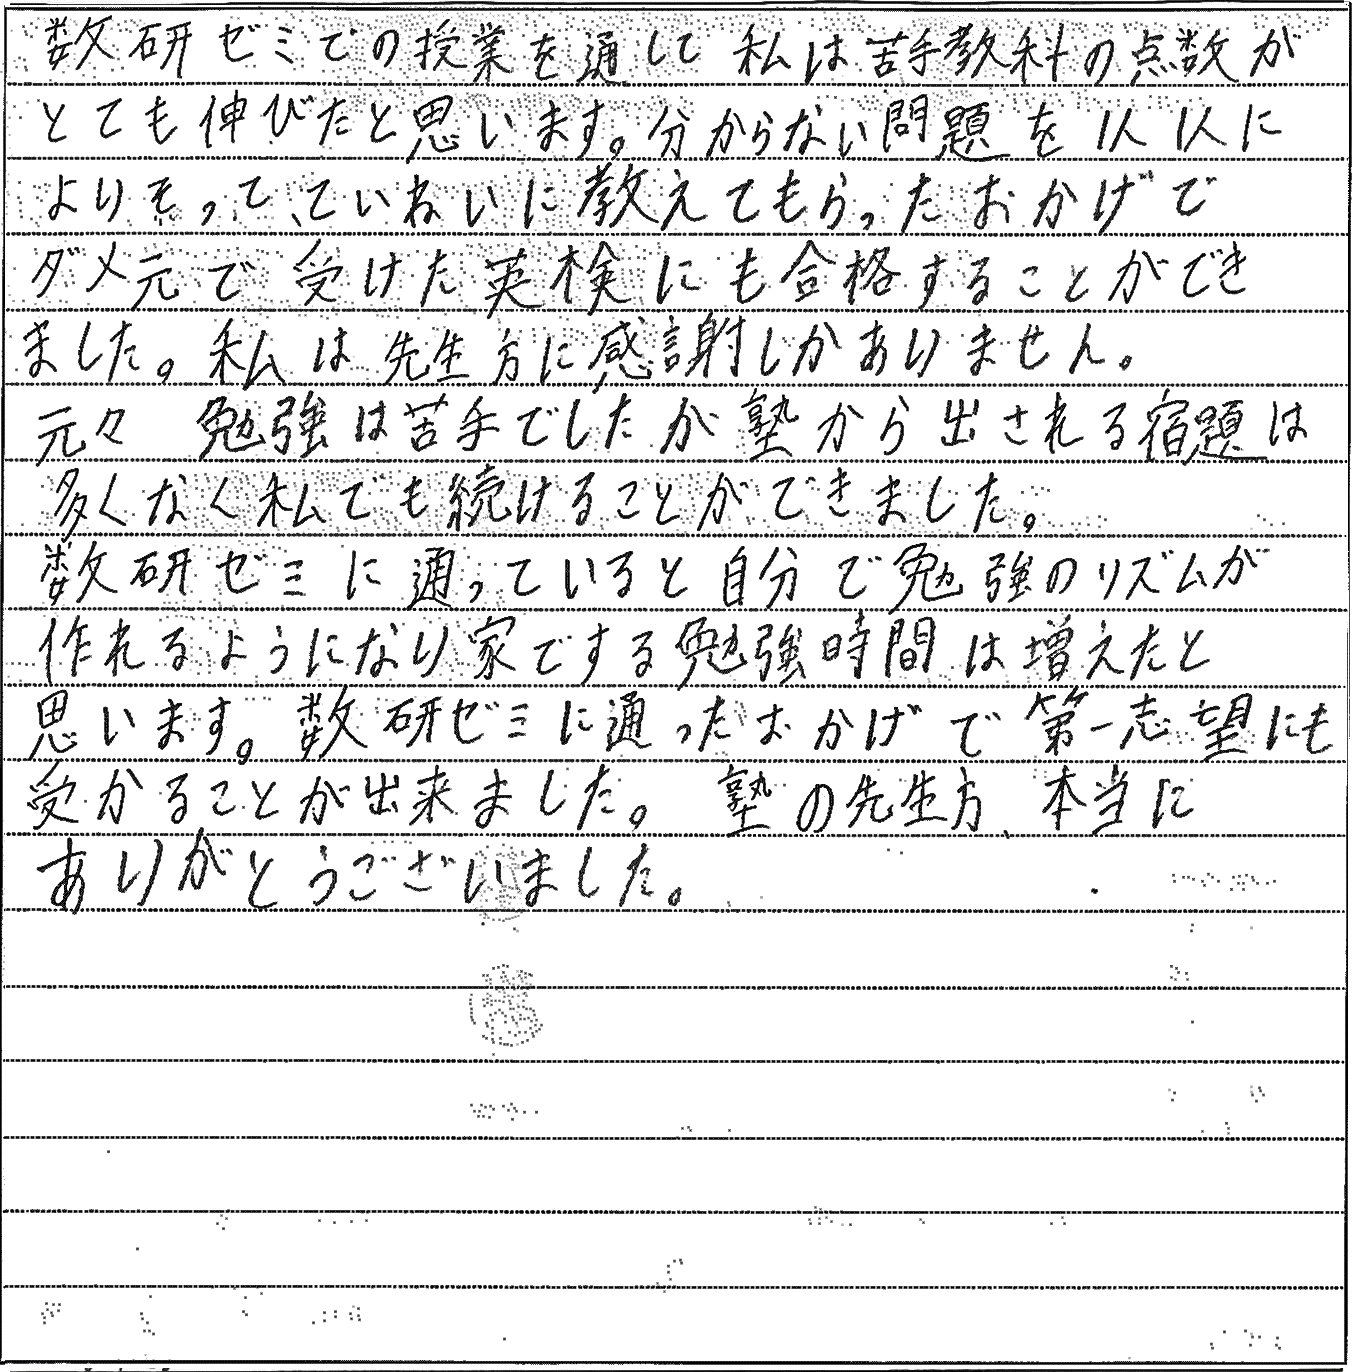 数研ゼミでの授業を通して 私は苦手教科の点数が
とても伸びたと思います。分からない問題を1人1人に
よりそって、ていねいに教えてもらったおかげで
ダメ元で受けた英検にも合格することができ
ました。私は先生方に感謝しかありません。
元々 勉強は苦手でしたが塾から出される宿題は
多くなく私でも続けることができました。
数研ゼミに通っていると自分で勉強のリズムが
作れるようになり家でする勉強時間は増えたと
思います。数研ゼミに通ったおかげで第一志望にも
受かることが出来ました。 塾の先生方、本当に
ありがとうございました。